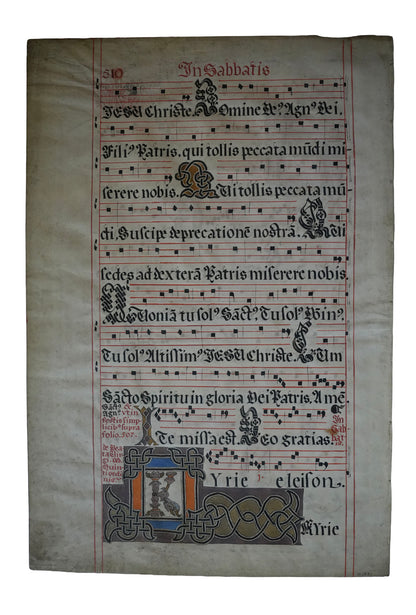 510 In Sabbatis
JESU Christe. Domine Deꝰ. Agnꝰ Dei.
Filiꝰ Patris. qui tollis peccata mūdi mi-
serere nobis. Qui tollis peccata mū-
di. Suscipe deprecationē nostrā. Qui
sedes ad dexterā Patris miserere nobis.
Quoniā tu solꝰ Sāctꝰ. Tu solꝰ Dōinꝰ.
Tu solꝰ Altissimꝰ JESU Christe. Cum
Sācto Spiritu in gloria Dei Patris. Amē.
Ite missa est. Deo gratias.
In Sab
Kyrie eleison.
Kyrie